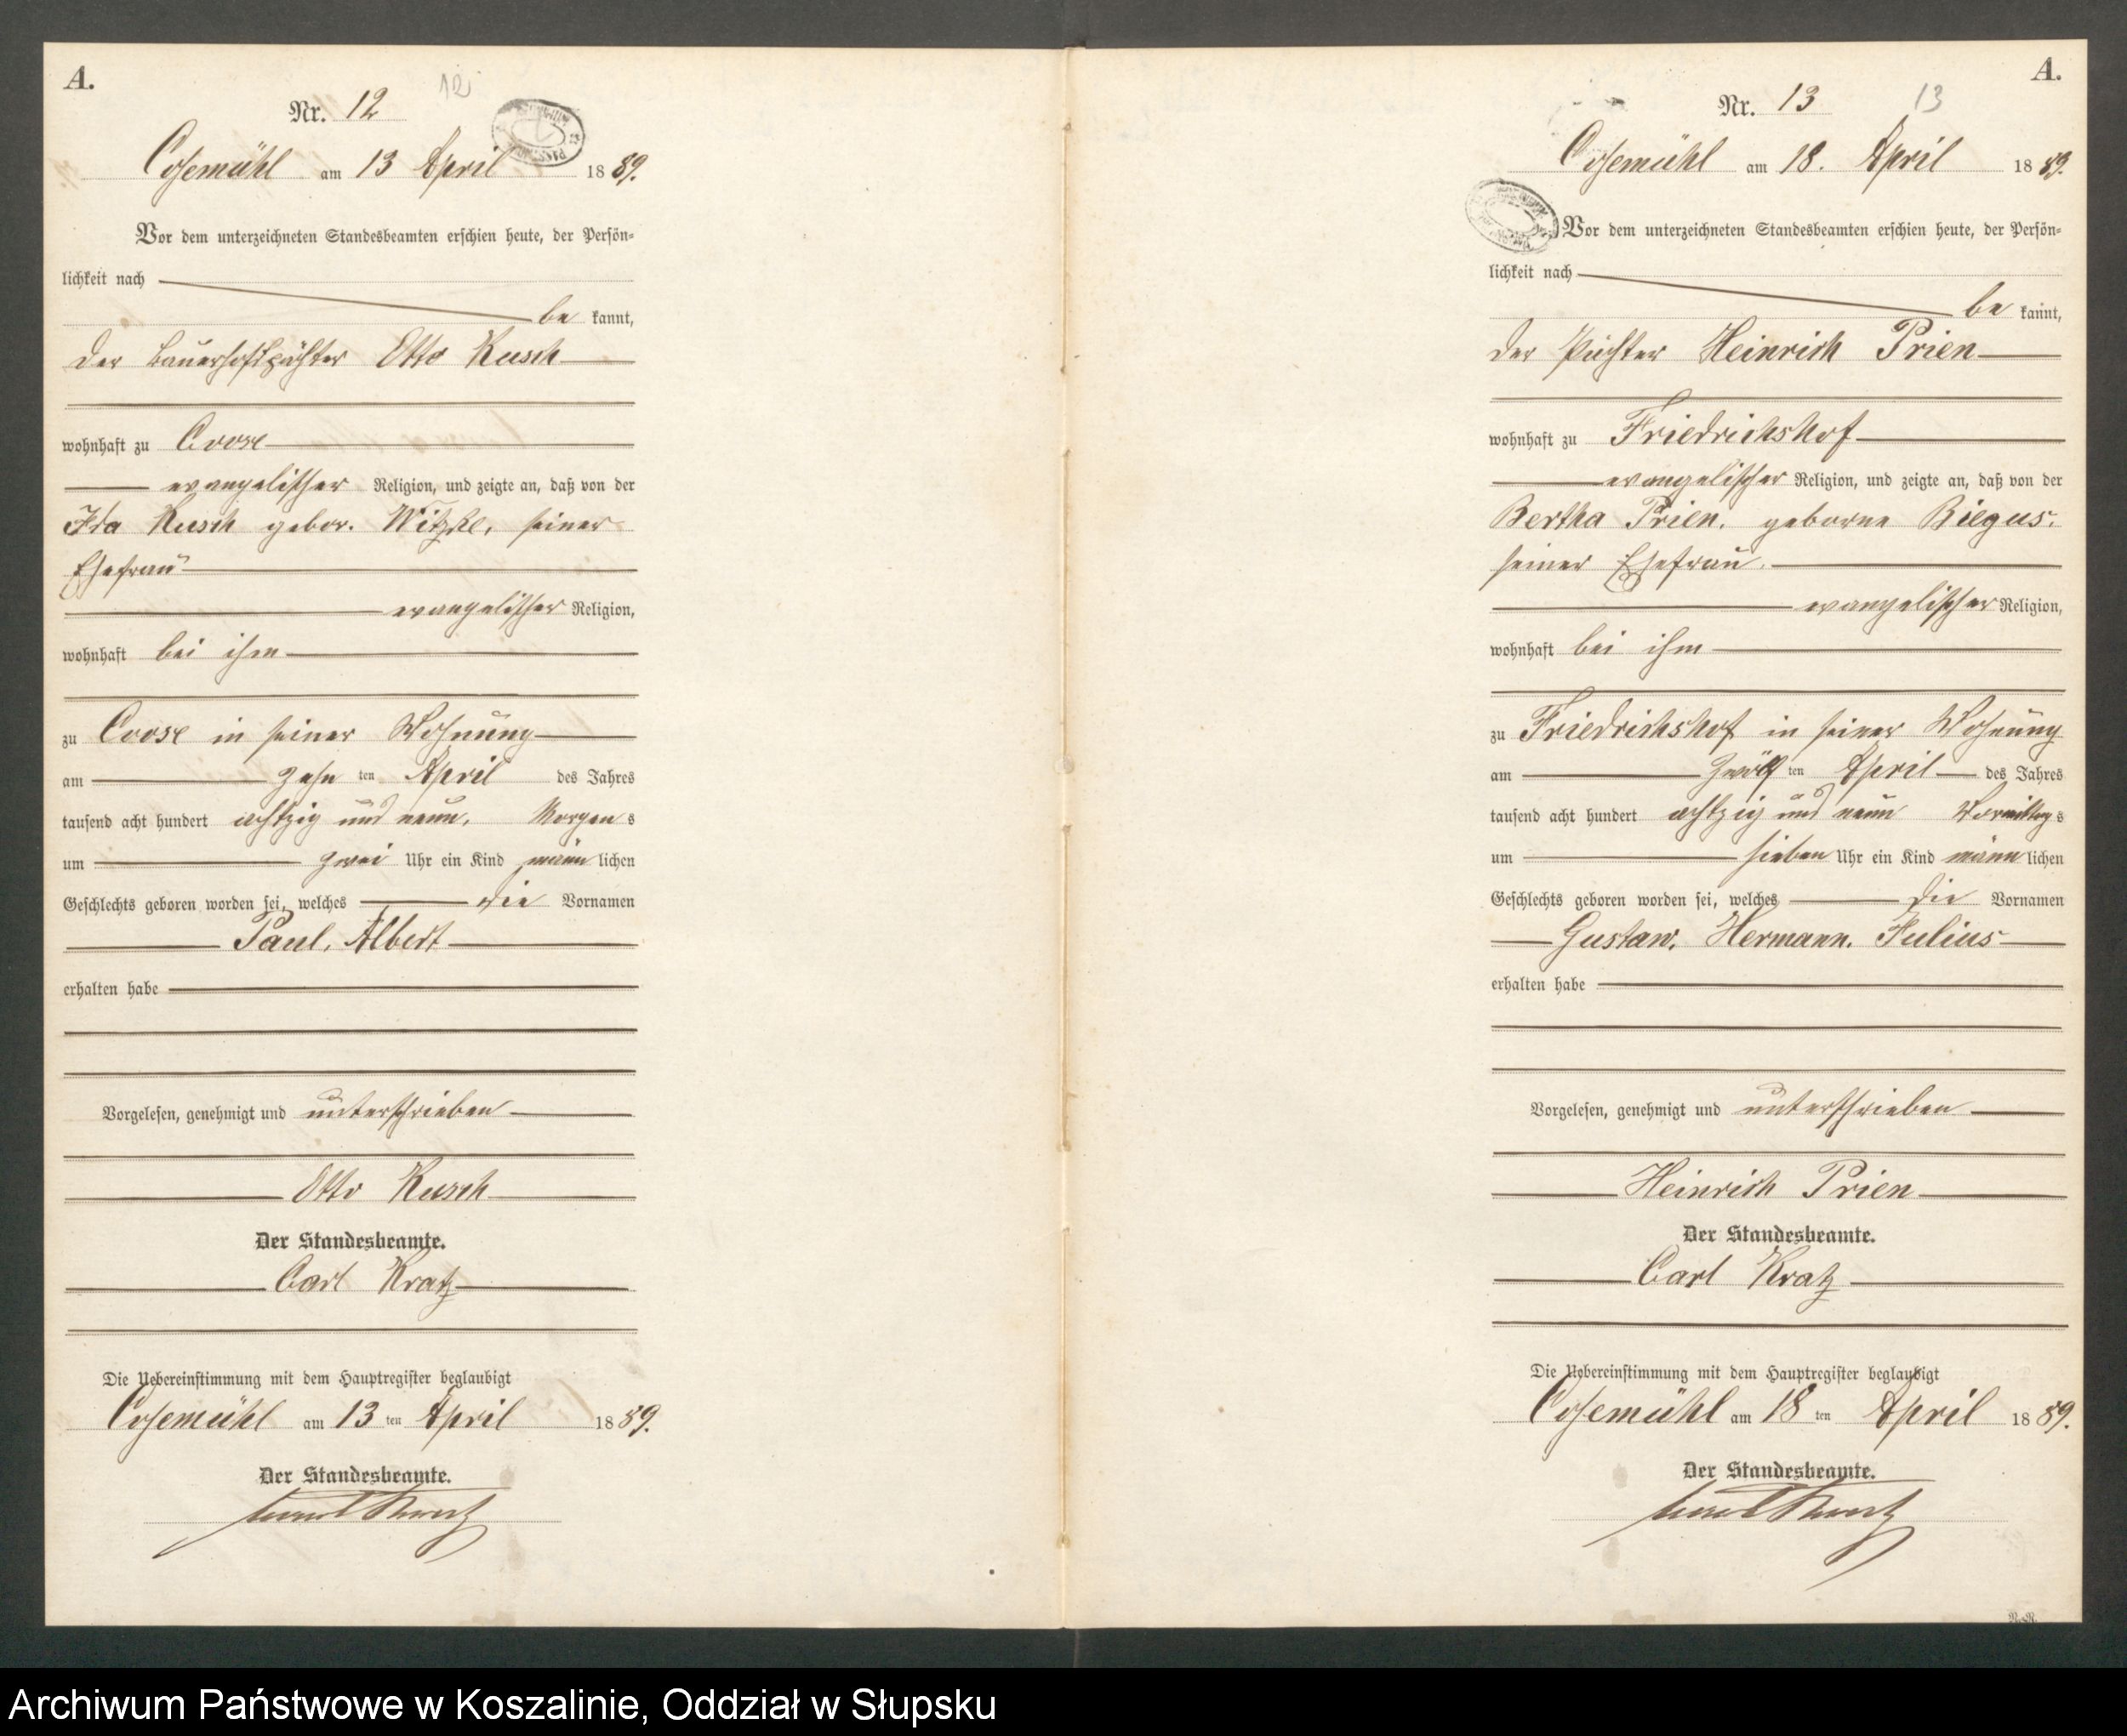 A.
Nr. 12
12
Cosemühl am 13 April 1889.
Vor dem unterzeichneten Standesbeamten erschien heute, der Persön=
lichkeit nach
be kannt,
der Bauerhofspächter Otto Kusch
wohnhaft zu Coose
evangelischer Religion, und zeigte an, daß von der
Ida Kusch gebor. Witzke, seiner
Ehefrau
evangelischer Religion,
wohnhaft bei ihm
zu Coose in seiner Wohnung
am zehn ten April des Jahres
tausend acht hundert achtzig und neun, Morgens
um zwei Uhr ein Kind männlichen
Geschlechts geboren worden sei, welches die Vornamen
Paul, Albert
erhalten habe
Vorgelesen, genehmigt und unterschrieben
Otto Kusch
Der Standesbeamte.
Carl Kratz
Die Uebereinstimmung mit dem Hauptregister beglaubigt
Cosemühl am 13 ten April 1889.
Der Standesbeamte.
Carl Kratz
A.
Nr. 13
13
Cosemühl am 18. April 1889.
Vor dem unterzeichneten Standesbeamten erschien heute, der Persön=
lichkeit nach
be kannt,
der Pächter Heinrich Prien
wohnhaft zu Friedrichshof
evangelischer Religion, und zeigte an, daß von der
Bertha Prien, geborne Biegus.
seiner Ehefrau.
evangelischer Religion,
wohnhaft bei ihm
zu Friedrichshof in seiner Wohnung
am zwölf ten April des Jahres
tausend acht hundert achtzig und neun Vormittags
um sieben Uhr ein Kind männlichen
Geschlechts geboren worden sei, welches die Vornamen
Gustaw, Hermann, Julius
erhalten habe
Vorgelesen, genehmigt und unterschrieben
Heinrich Prien
Der Standesbeamte.
Carl Kratz
Die Uebereinstimmung mit dem Hauptregister beglaubigt
Cosemühl am 18 ten April 1889.
Der Standesbeamte.
Carl Kratz
Archiwum Państwowe w Koszalinie, Oddział w Słupsku